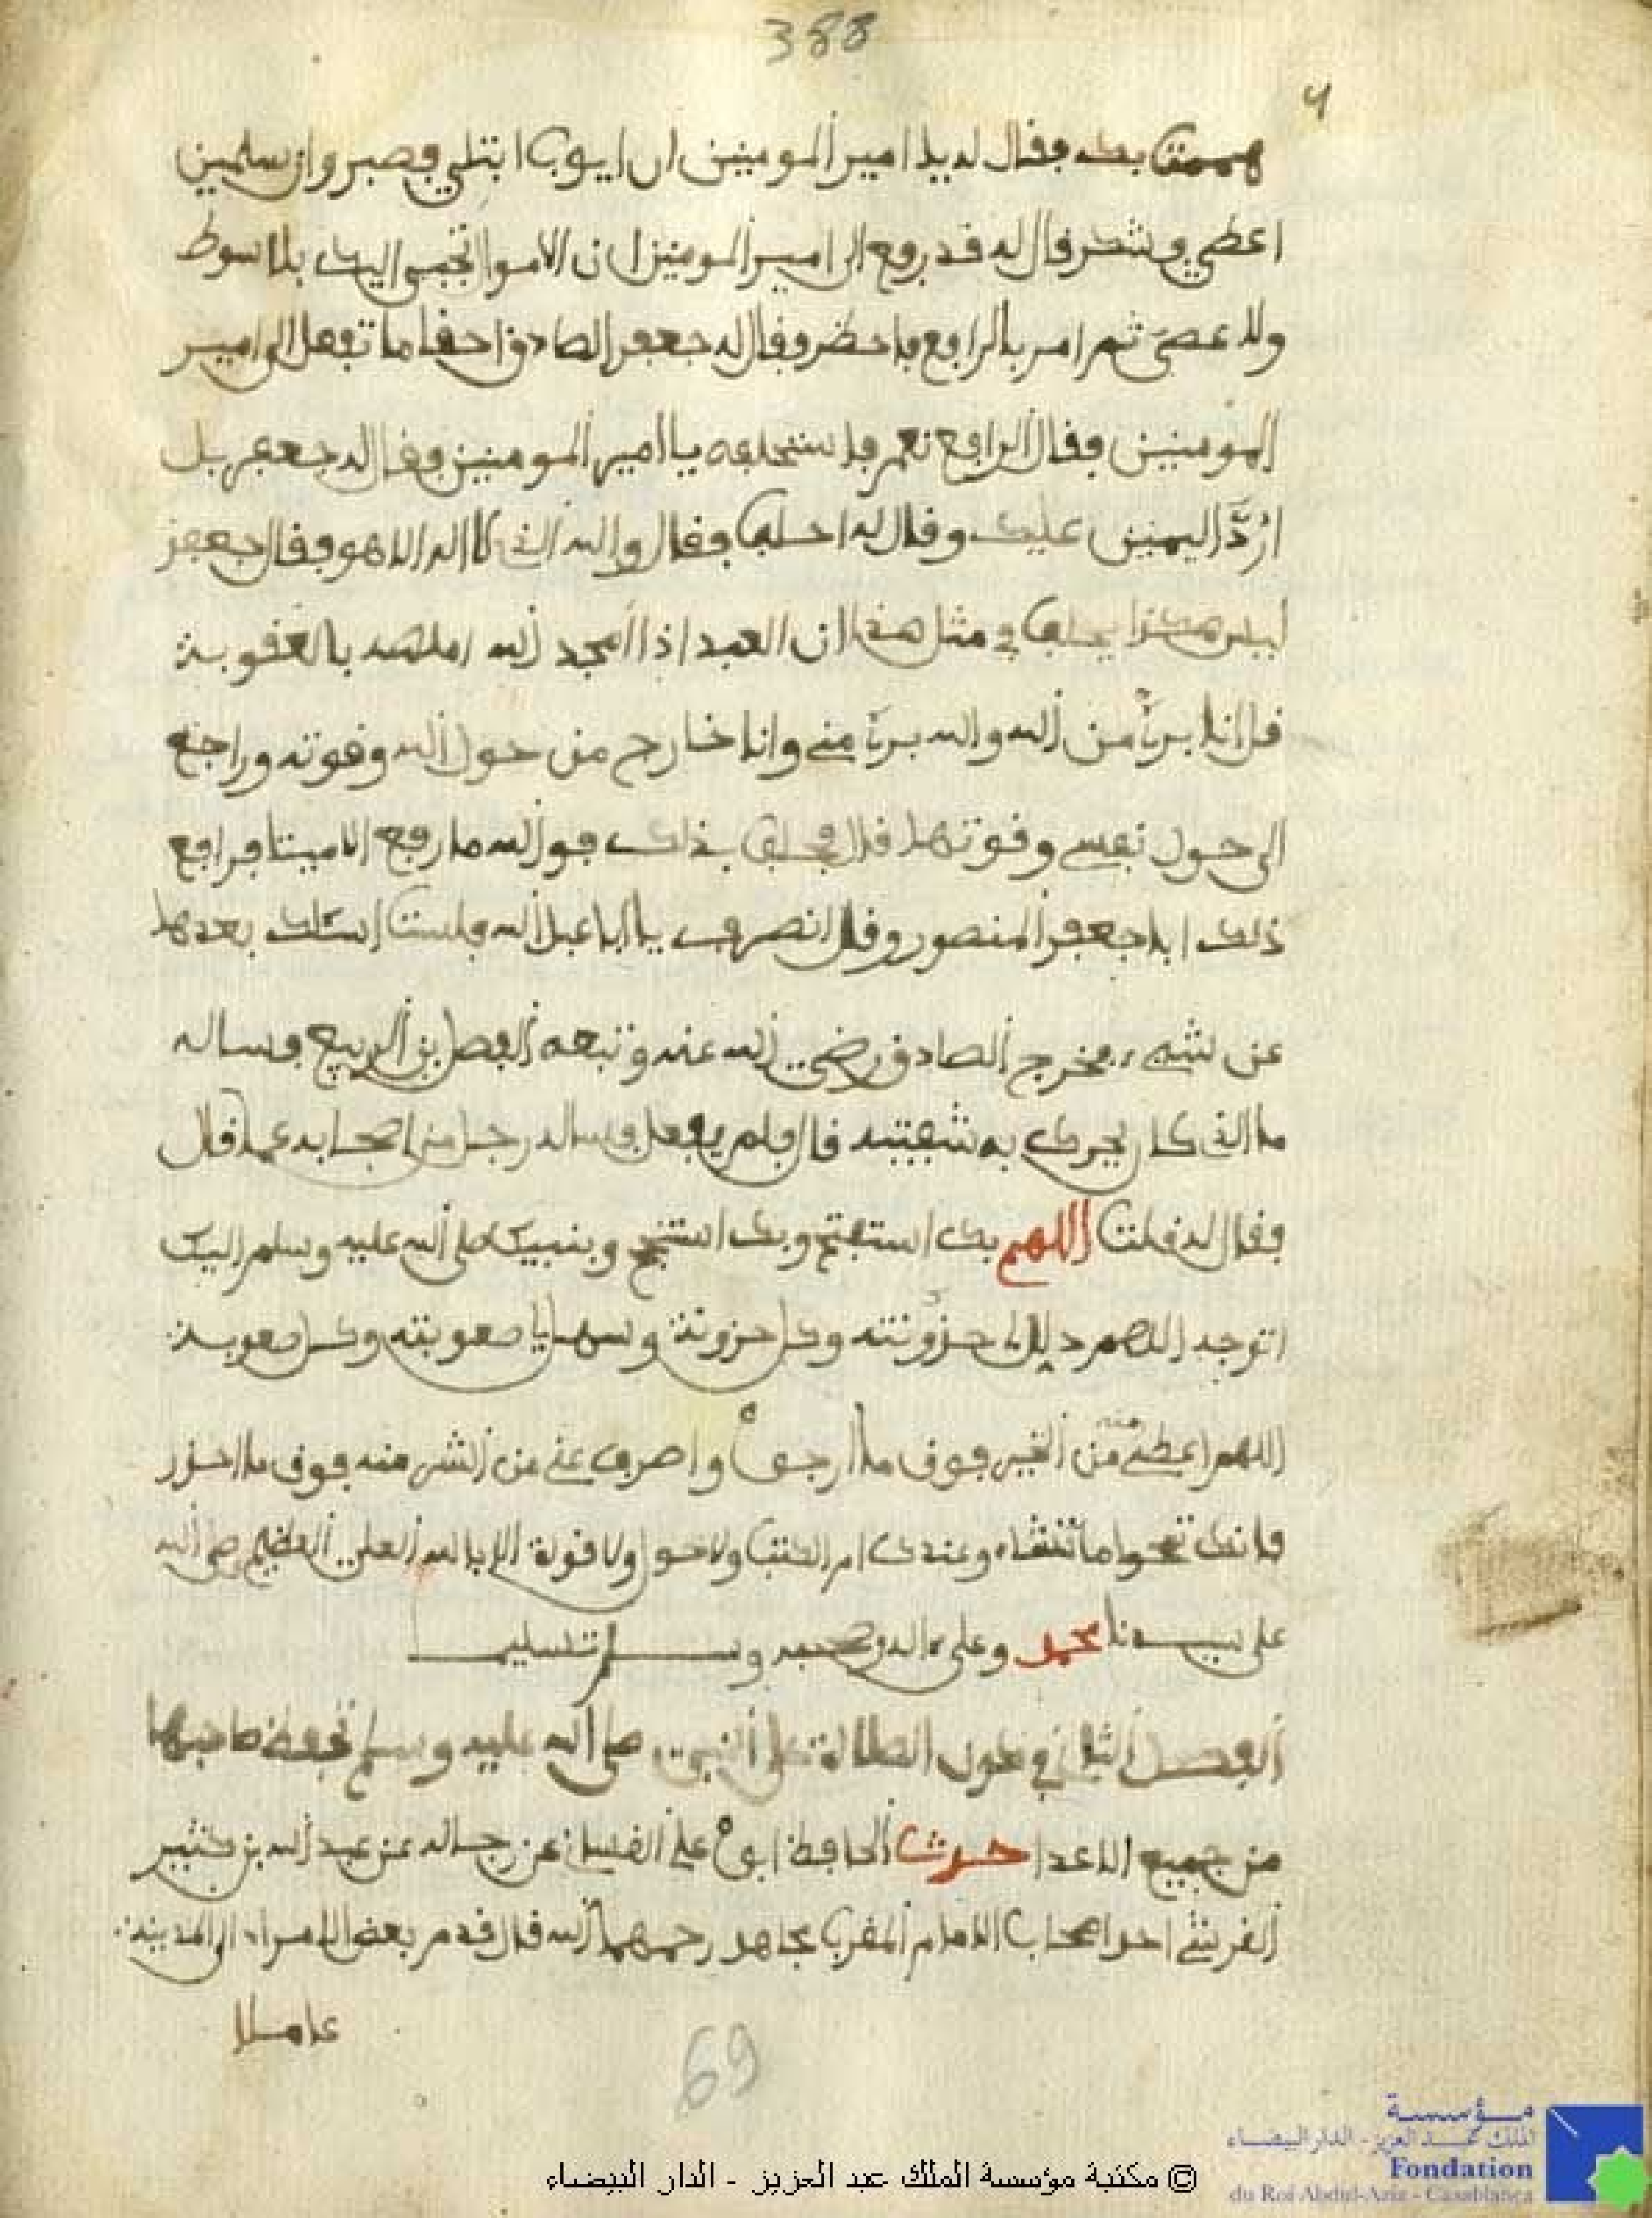 388
4
هممت بك فقال له يا امير المومنين ان ايوب ابتلي فصبر وان سليمن
اعطي فشكر قال له قد رفع الى امير المومنين ان الاموال تجبى اليك بلا سوط
ولا عصى ثم امر بالرافع فاحضر فقال له جعفر الصادق احقا ما تفعل الى امير
المومنين فقال الرافع نعم فاستحلفه يا امير المومنين فقال له جعفر بل
اردّ اليمين عليك وقال له احلف فقال والله الذي لا اله الا هو فقال جعفر
ليس هكذا يحلف في مثل هذا ان العبد اذا امجد الله امله بالعقوبة
قل انا برئ من الله والله برئ مني وانا خارج من حول الله وقوته وراجع
الى حول نفسي وقوتها قال فحلف بذلك فوالله ما رفع الا ميتا فراع
ذلك ابا جعفر المنصور وقال انصرف يا ابا عبد الله فلست اسئلك بعدها
عن شيء فخرج الصادق رضي الله عنه وتبعه الفضل بن الربيع فساله
ما الذي كان يحرك به شفتيه قال فلم يفعل فساله رجل من اصحابه عما قال
فقال له قلت اللهم بك استفتح وبك استنجح وبنبيك صلى الله عليه وسلم اليك
اتوجه اللهم ذلل لي حزونته وكل حزونة وسهل لي صعوبته وكل صعوبة
اللهم اعطني منه من الخير فوق ما ارجوا واصرف عني من الشر منه فوق ما احذر
فانك تمحوا ما تشاء وعندك ام الكتب ولا حول ولا قوة الا بالله العلي العظيم صلى الله
على سيدنا محمد وعلى ءاله وصحبه وسلم تسليما
الفصل الثاني في كون الصلاة على النبي صلى الله عليه وسلم تحفظ صاحبها
من جميع الاعدا حدث الحافظ ابو علي الغساني عن رجاله عن عبد الله بن كثير
القرشي احد اصحاب الامام المقرب مجاهد رحمهما الله قال قدم بعض الامراء الى المدينة
عاملا
69
مؤسسة
الملك عبد العزيز - الدار البيضاء
Fondation
du Roi Abdul-Aziz - Casablanca
© مكتبة مؤسسة الملك عبد العزيز - الدار البيضاء